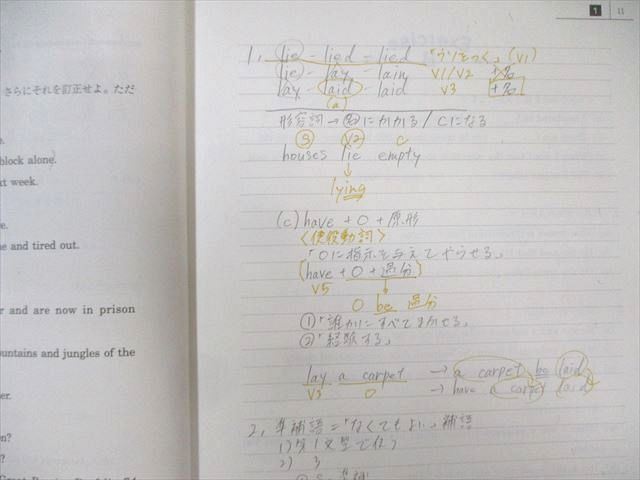 さらにそれを訂正せよ。ただ
block alone.
xt week.
e.
ne and tired out.
r and are now in prison
untains and jungles of the
er.
n?
?
1 11
1. lie - lied - lied 「ウソをつく」(V1)
lie - lay - lain V1/V2 +名
lay - laid - laid V3 +名
(a)
形容詞→名にかかる/Cになる
S V2 C
houses lie empty
↓
lying
(c) have + O + 原形
<使役動詞>
「Oに指示を与えてやらせる」
(have + O + 過分)
V5 ↓
O be 過分
①「誰かにすべてまかせる」
②「経験する」
lay a carpet → a carpet be laid
V3 O → have a carpet laid
2. 準補語=「なくてもよい」補語
1) 第1文型で使う
2) 3